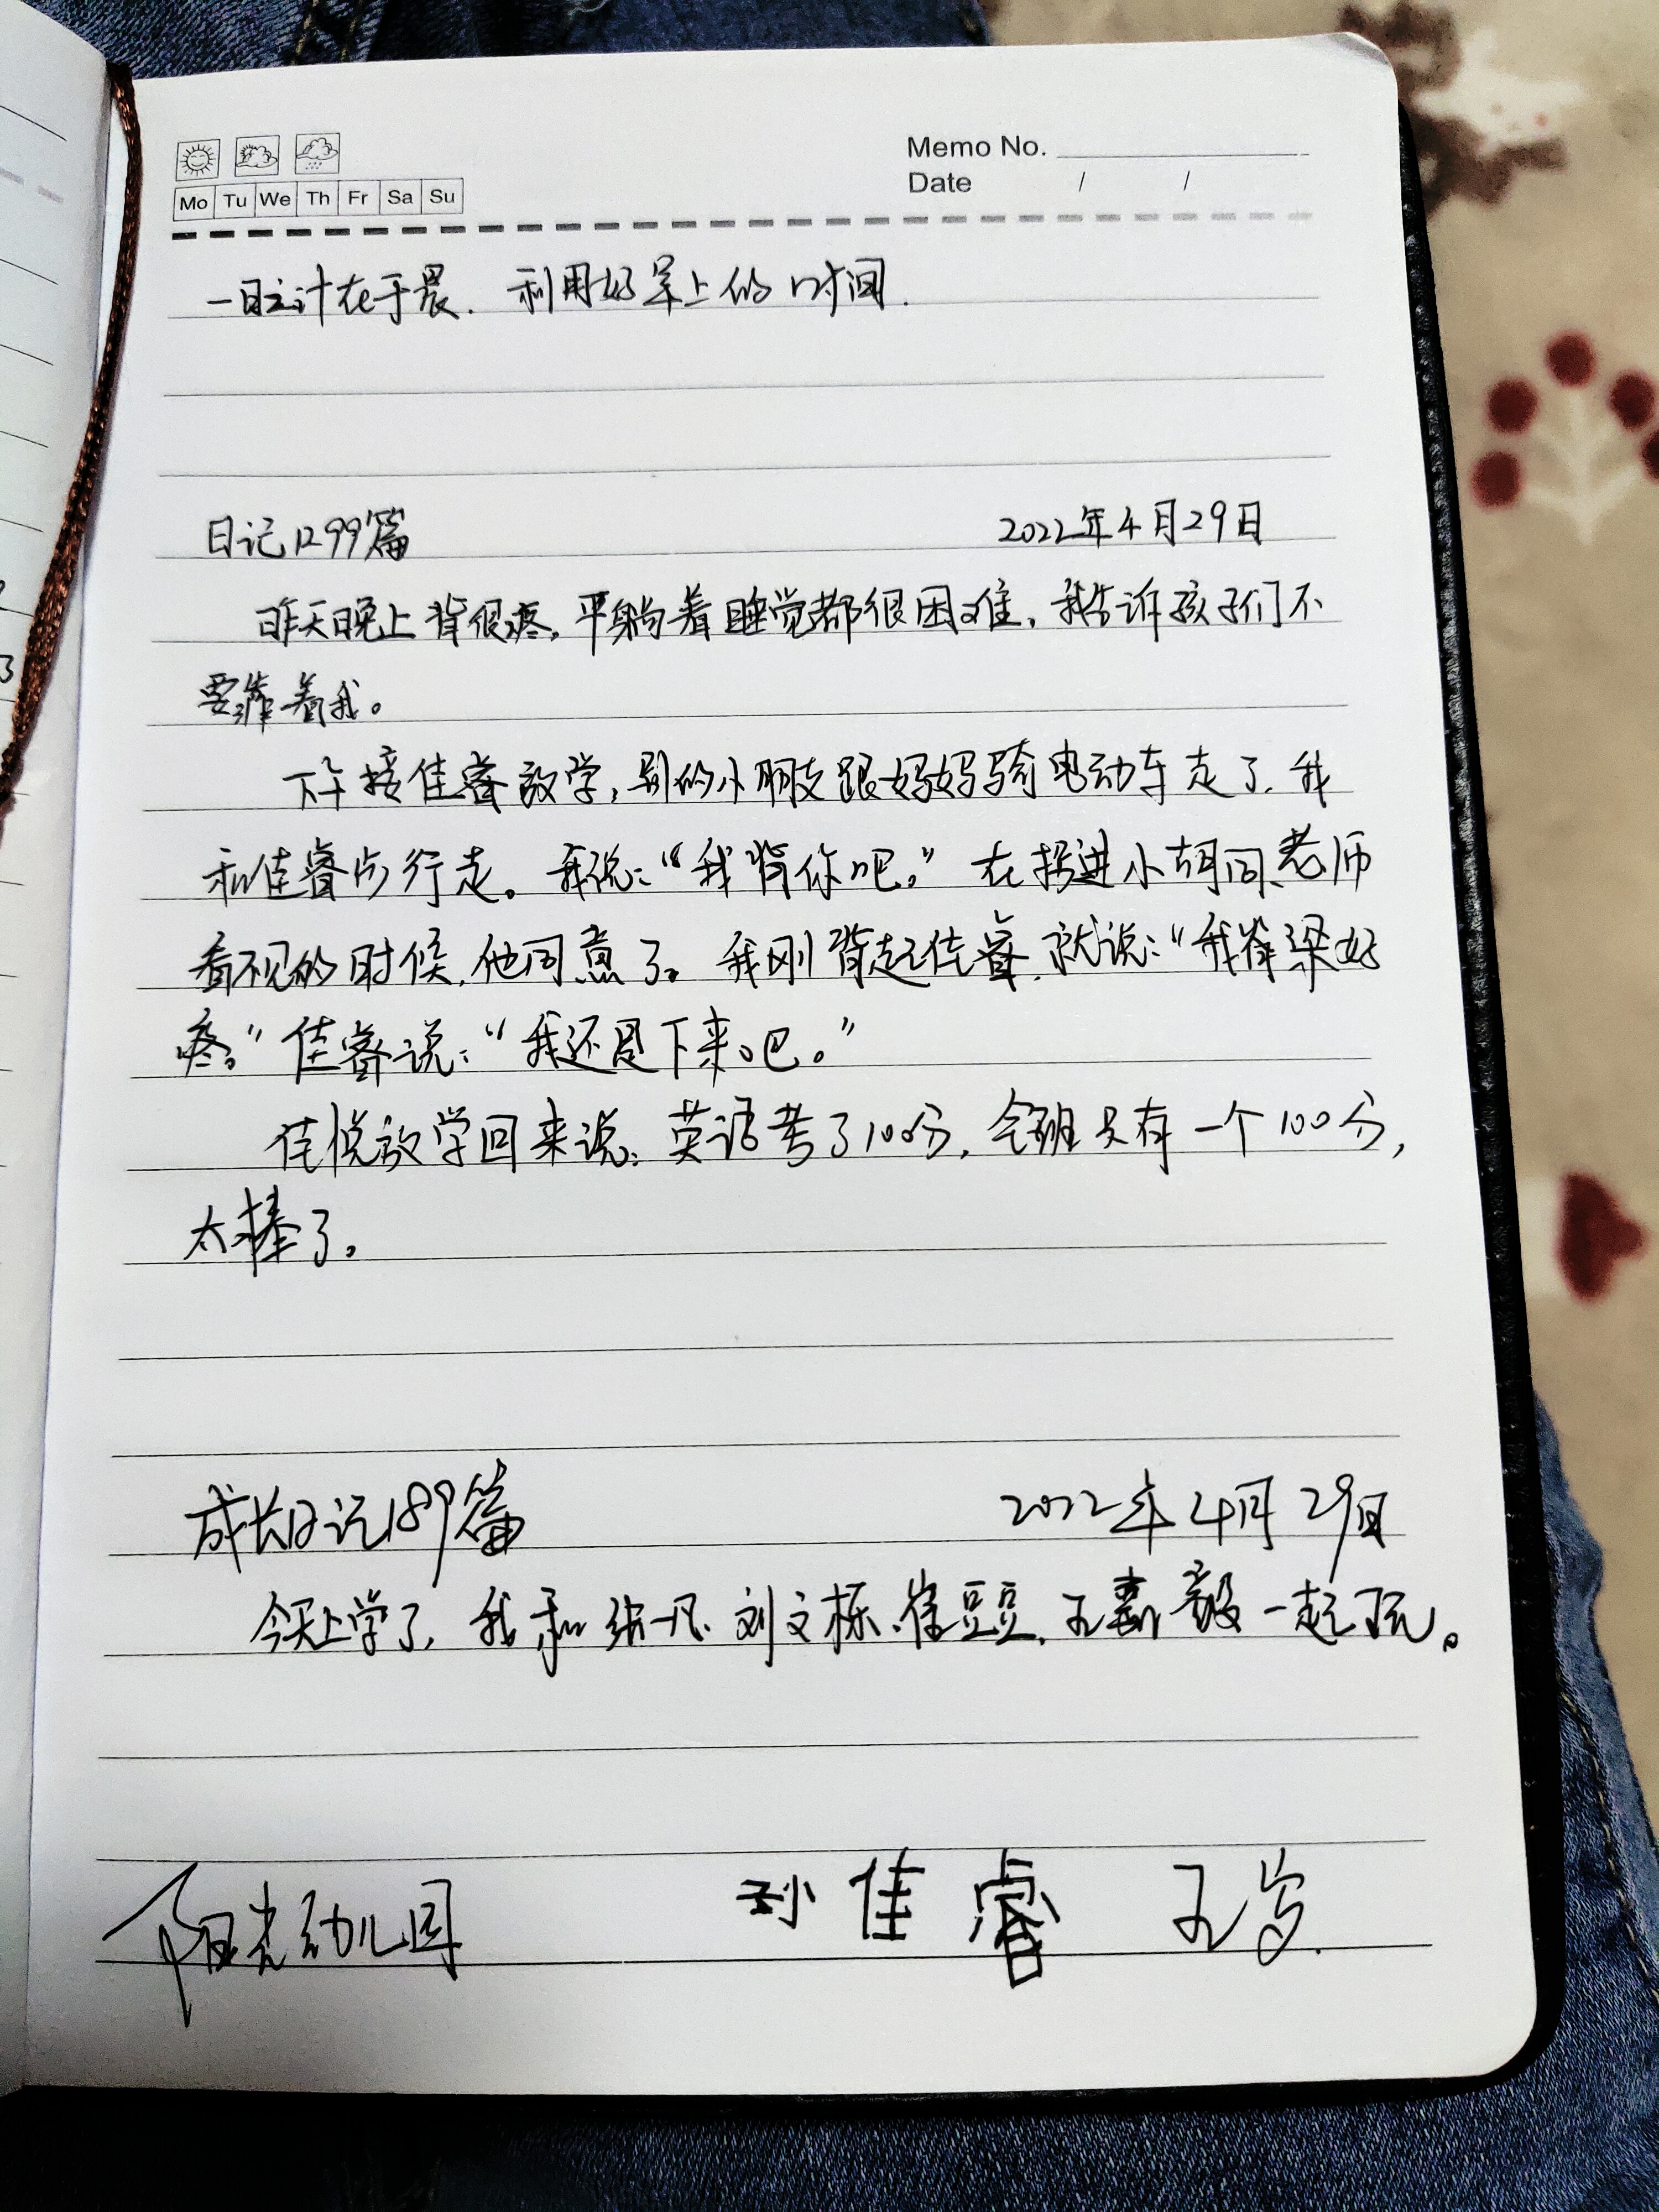 Memo No.
Mo Tu We Th Fr Sa Su
Date / /
一日之计在于晨. 利用好早上的时间.
日记1299篇 2022年4月29日
昨天晚上背很疼,平躺着睡觉都很困难,我告诉孩子们不
要靠着我。
下午接佳睿放学,别的小朋友跟妈妈骑电动车走了.我
和佳睿步行走。我说:“我背你吧。”在拐进小胡同、老师
看不见的时候,他同意了。我刚背起佳睿,就说:“我脊梁好
疼。”佳睿说:“我还是下来吧。”
佳悦放学回来说:英语考了100分,全班只有一个100分,
太棒了。
成长日记189篇 2022年4月29日
今天上学了,我和张一凡、刘文栎、崔豆豆、王嘉毅一起玩。
阳光幼儿园 孙佳睿 五岁.